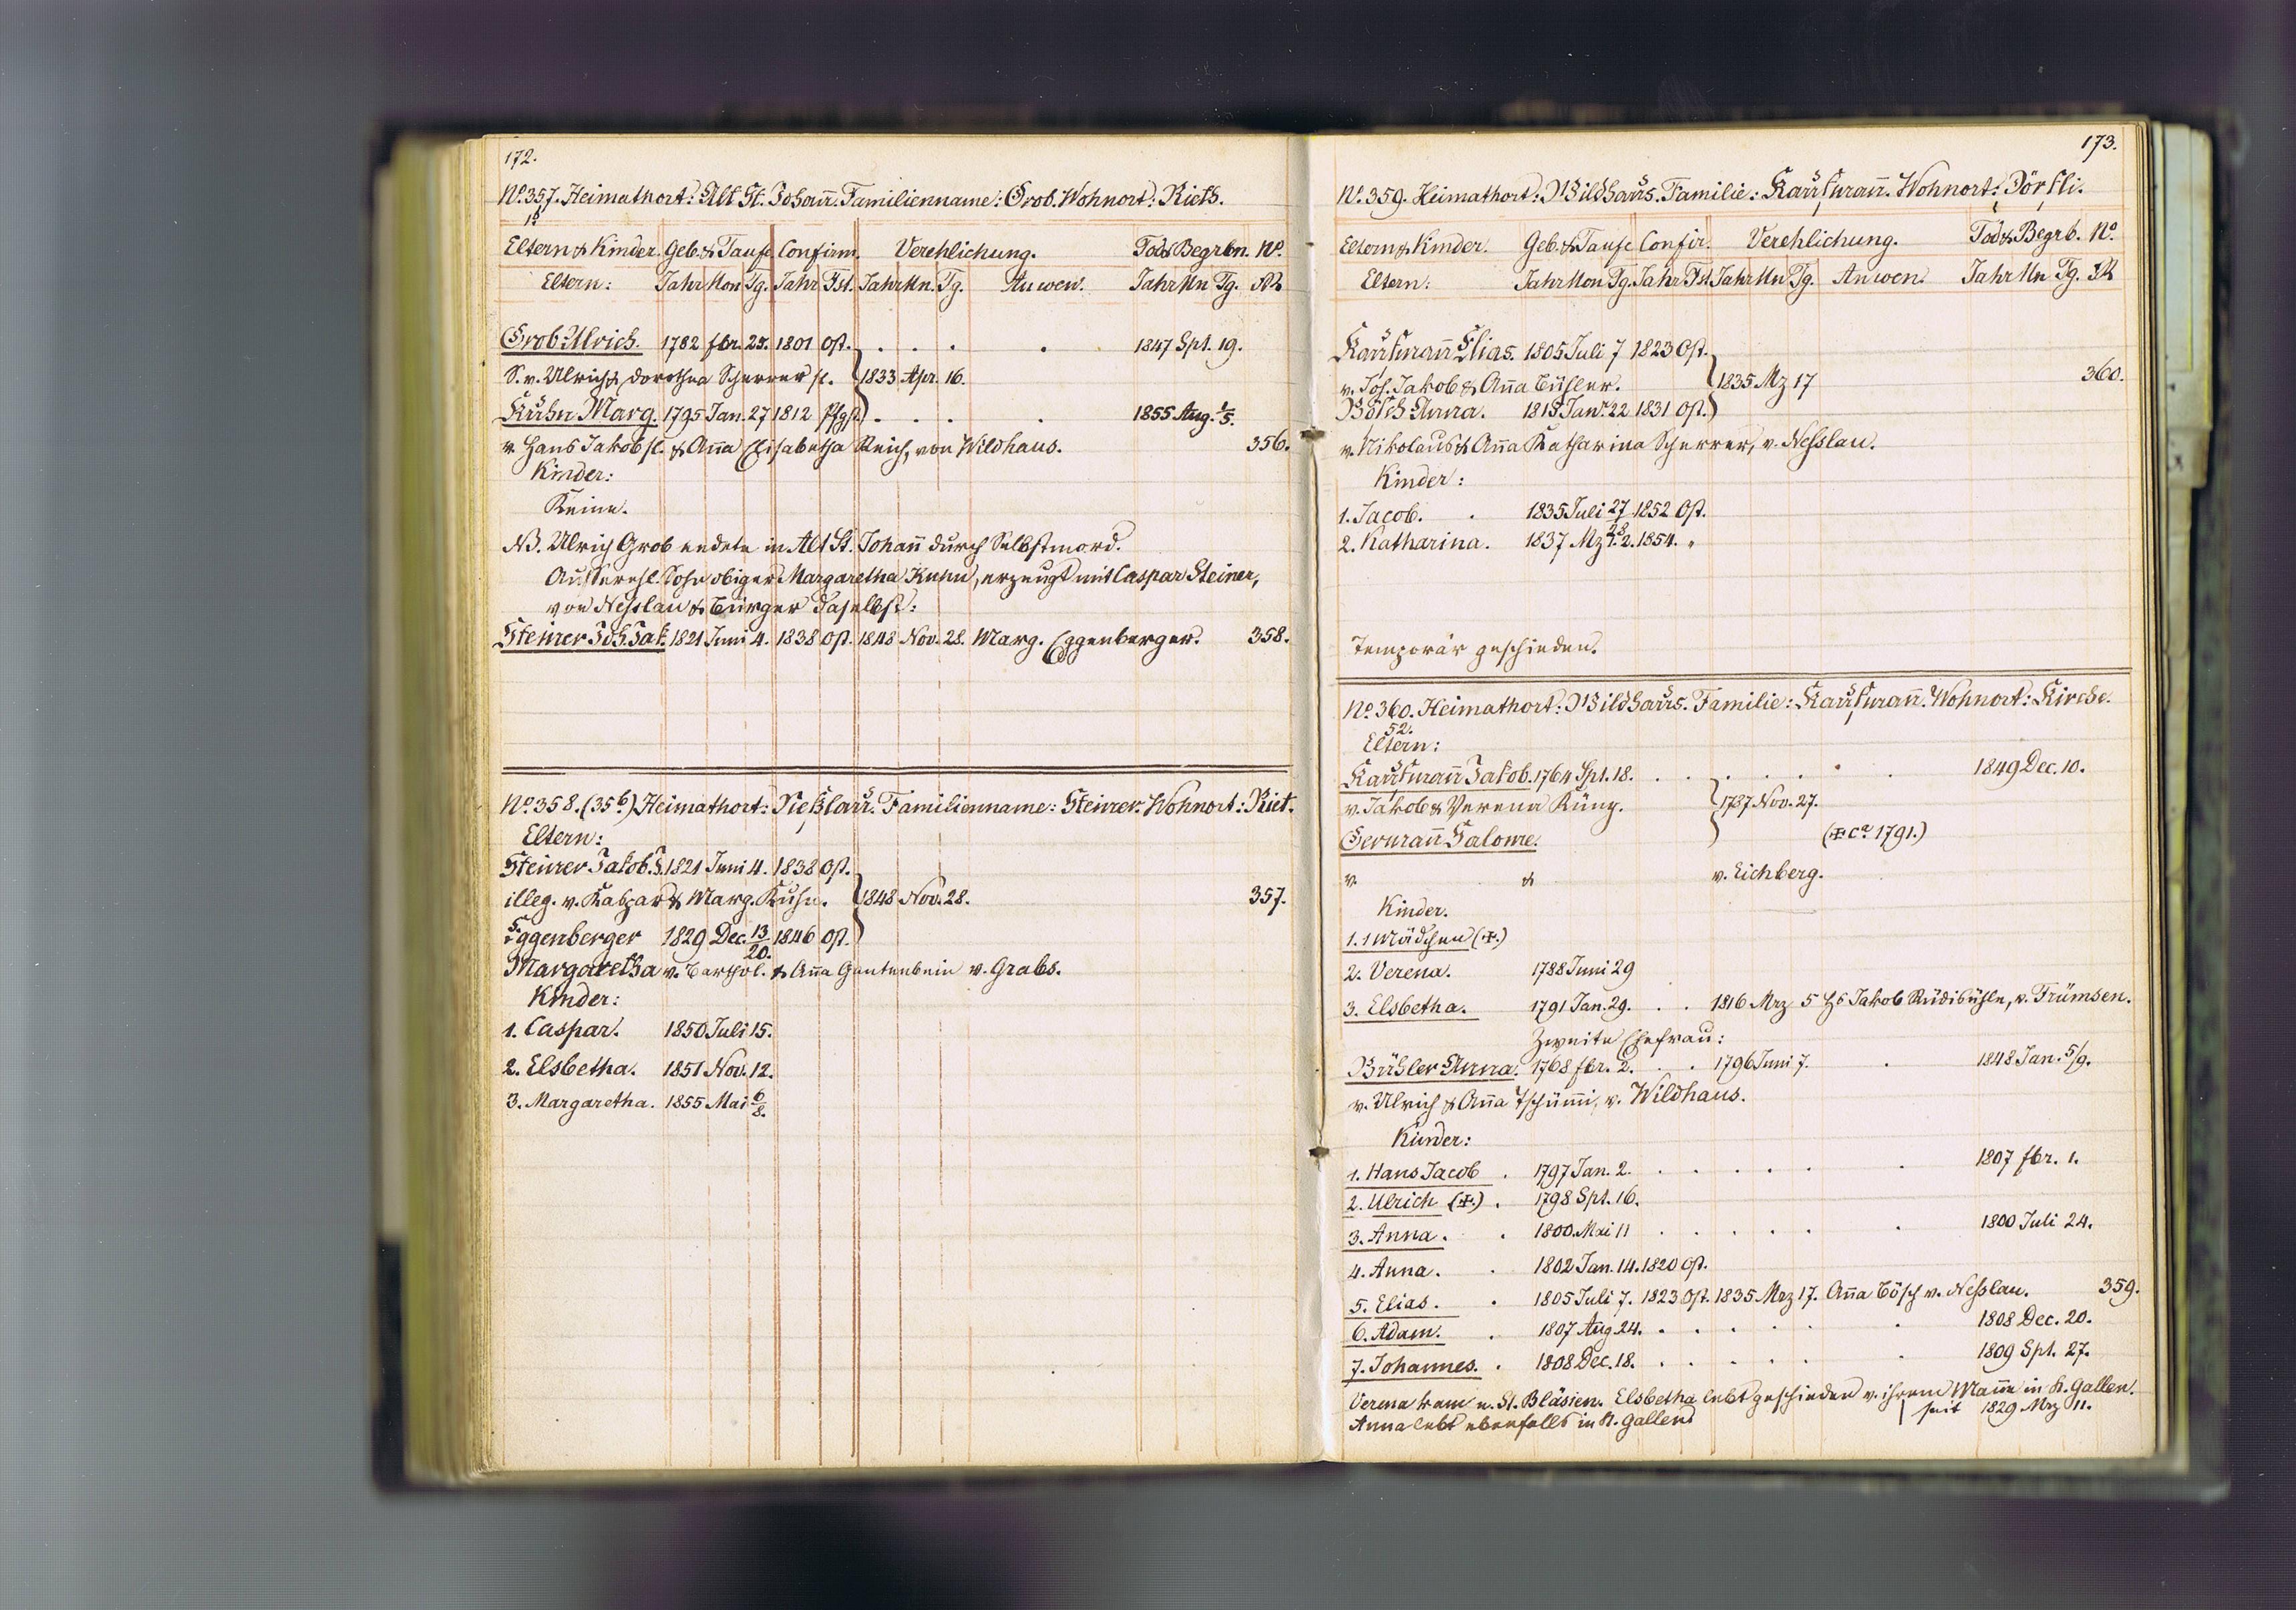 172.
No. 357. Heimathort: Alt St. Johan̄. Familienname: Grob. Wohnort: Rieth.
Eltern & Kinder. Geb. & Taufe Confirm. Verehlichung. Tod & Begrbn. No.
Eltern: Jahr Mon Tg. Jahr Fst. Jahr Mn. Tg. Anwen. Jahr Mn Tg.
Grob Ulrich. 1782 fbr. 1801 Ost. 1847 Spt. 19.
S. v. Ulrich & Dorothea Scherrer sl. 1833 Apr. 16.
Kuhn Marg. 1795 Jan. 27 1812 Pfgst. 1855 Aug. 1/5.
v. Hans Jakob sl. & An̄a Elisabetha Reich, von Wildhaus. 356.
Kinder:
Keine.
NB. Ulrich Grob endete in Alt St. Johan̄ durch Selbstmord.
Ausserehl. Sohn obiger Margaretha Kuhn, erzeugt mit Caspar Steiner,
von Nesslau & Bürger daselbst:
Steiner Joh. Jak. 1821 Juni 4. 1838 Ost. 1848 Nov. 28. Marg. Eggenberger. 358.
No. 358. (35b) Heimathort: Neßlau. Familienname: Steiner. Wohnort: Riet.
Eltern:
Steiner Jakob J. 1821 Juni 4. 1838 Ost.
illeg. v. Kaspar & Marg. Kuhn. 1848 Nov. 28. 357.
Eggenberger 1829 Dec. 13/20. 1846 Ost.
Margaretha v. Barthol. & An̄a Gantenbein v. Grabs.
Kinder:
1. Caspar. 1850 Juli 15.
2. Elsbetha. 1851 Nov. 12.
3. Margaretha. 1855 Mai 6/8.
173.
No. 359. Heimathort: Wildhaus. Familie: Kaufman̄. Wohnort: Dörfli.
Eltern & Kinder. Geb. & Taufe Confir. Verehlichung. Tod & Begrb. No.
Eltern: Jahr Mon Tg. Jahr Fst. Jahr Mn Tg. Anwen. Jahr Mn Tg.
Kauffman̄ Elias. 1805 Juli 7 1823 Ost.
v. Joh. Jakob & An̄a Bühler. 1835 Mz 17 360.
Bösch Anna. 1815 Jan. 22 1831 Ost.
v. Nikolaus & An̄a Katharina Scherrer, v. Nesslau.
Kinder:
1. Jacob. 1835 Juli 27 1852 Ost.
2. Katharina. 1837 Mz 1854. "
Temporär geschieden.
No. 360. Heimathort: Wildhaus. Familie: Kauffman̄. Wohnort: Kirche.
52.
Eltern:
Kauffman̄ Jakob. 1764 Spt. 18. 1849 Dec. 10.
v. Jakob & Verena Küng. 1787 Nov. 27.
German̄ Salome. (✝ ca 1791.)
v. & v. Eichberg.
Kinder.
1. 1 Mädchen (✝.)
2. Verena. 1788 Juni 29
3. Elsbetha. 1791 Jan. 29. 1816 Mrz 5 Hs Jakob Rüdisühle, v. Frümsen.
Zweite Ehefrau:
Bühler Anna. 1768 fbr. 2. 1796 Juni 7. 1848 Jan. 5/9.
v. Ulrich & An̄a Tschümi, v. Wildhaus.
Kinder:
1. Hans Jacob 1797 Jan. 2. 1807 fbr. 1.
2. Ulrich (✝.) 1798 Spt. 16.
3. Anna. 1800. Mai 11 1800 Juli 24.
4. Anna. 1802 Jan. 14. 1820 Ost.
5. Elias. 1805 Juli 7. 1823 Ost. 1835 Mrz 17. An̄a Bösch v. Nesslau. 359.
6. Adam. 1807 Aug. 24. 1808 Dec. 20.
7. Johannes. 1808 Dec. 18. 1809 Spt. 27.
Verena kam n. St. Bläsien. Elsbetha lebt geschieden v. ihrem Man̄e in St. Gallen.
Anna lebt ebenfalls in St. Gallen seit 1829 Mrz 11.